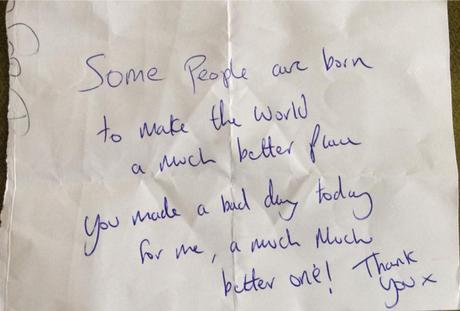 Some People are born
to make the world
a much better place
You made a bad day today
for me, a much Much
better one! Thank
you x